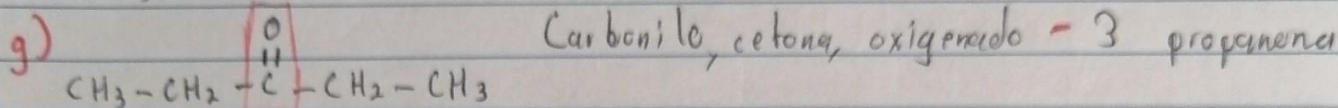 g)
O
||
CH3-CH2-C-CH2-CH3
Carbonilo, cetona, oxigenado - 3 propanona